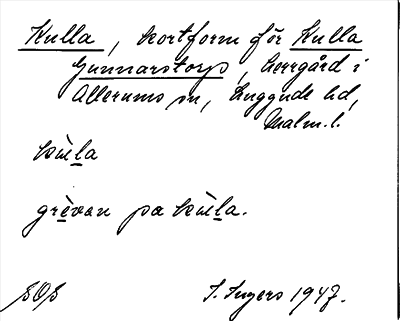 Kulla, kortform för Kulla
Gunnarstorp, herrgård i
Allerums sn, Luggude hd,
Malm.l.
kùla
grèvan på kùla.
I. Ingers 1947.